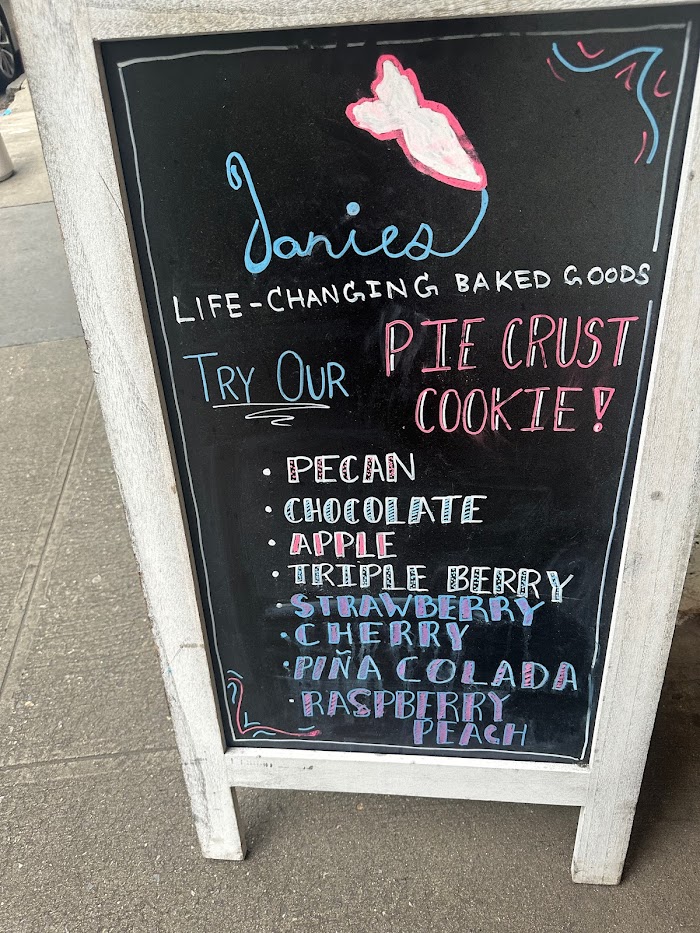 Janies
LIFE-CHANGING BAKED GOODS
TRY OUR
PIE CRUST
COOKIE!
• PECAN
• CHOCOLATE
• APPLE
• TRIPLE BERRY
• STRAWBERRY
• CHERRY
• PIÑA COLADA
• RASPBERRY
PEACH